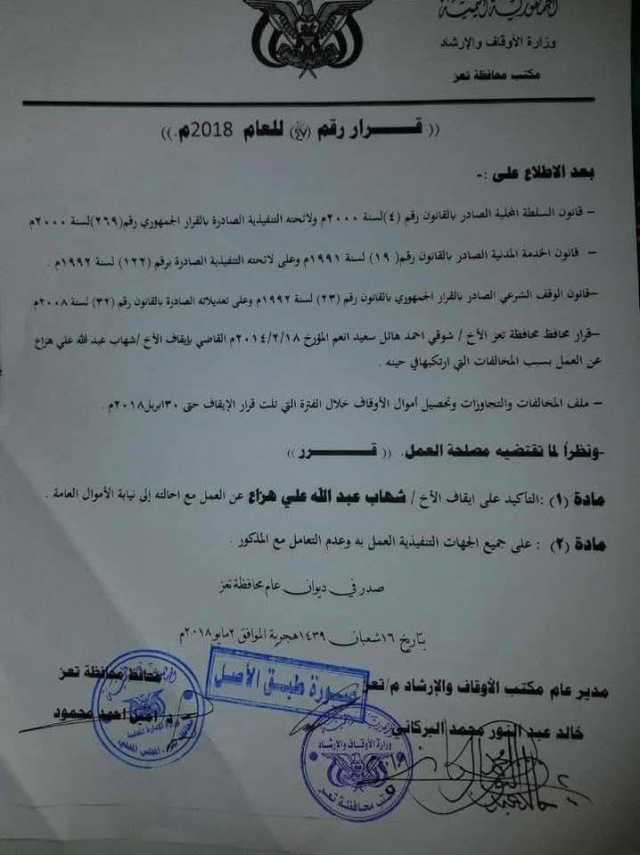 الجمهورية اليمنية
وزارة الأوقاف والإرشاد
مكتب محافظة تعز
(( قـــرار رقم (٤٧) للعام 2018م ))
بعد الاطلاع على :-
– قانون السلطة المحلية الصادر بالقانون رقم (٤) لسنة ٢٠٠٠م ولائحته التنفيذية الصادرة بالقرار الجمهوري رقم(٢٦٩)لسنة ٢٠٠٠م
– قانون الخدمة المدنية الصادر بالقانون رقم( ١٩) لسنة ١٩٩١م وعلى لائحته التنفيذية الصادرة برقم (١٢٢) لسنة ١٩٩٢م .
–قانون الوقف الشرعي الصادر بالقرار الجمهوري بالقانون رقم (٢٣) لسنة ١٩٩٢م وعلى تعديلاته الصادرة بالقانون رقم (٣٢) لسنة ٢٠٠٨م
–قرار محافظ محافظة تعز الأخ / شوقي احمد هائل سعيد انعم المؤرخ ٢٠١٤/٢/١٨م القاضي بإيقاف الأخ /شهاب عبد الله علي هزاع
عن العمل بسبب المخالفات التي ارتكبهافي حينه .
– ملف المخالفات والتجاوزات وتحصيل أموال الأوقاف خلال الفترة التي تلت قرار الإيقاف حتى ٣٠ابريل٢٠١٨م .
-ونظراً لما تقتضيه مصلحة العمل. (( قـــرر ))
مادة (١) :التأكيد على ايقاف الأخ / شهاب عبد الله علي هزاع عن العمل مع احالته إلى نيابة الأموال العامة .
مادة (٢) : على جميع الجهات التنفيذية العمل به وعدم التعامل مع المذكور .
صدر في ديوان عام محافظة تعز
بتاريخ ١٦شعبان ١٤٣٩هجرية الموافق ٢مايو٢٠١٨م
محافظ محافظة تعز
د. أمين احمد محمود
صورة طبق الأصل
مدير عام مكتب الأوقاف والإرشاد م/تعز
خالد عبد النور محمد البركاني
وزارة الأوقاف والإرشاد
مكتب محافظة تعز